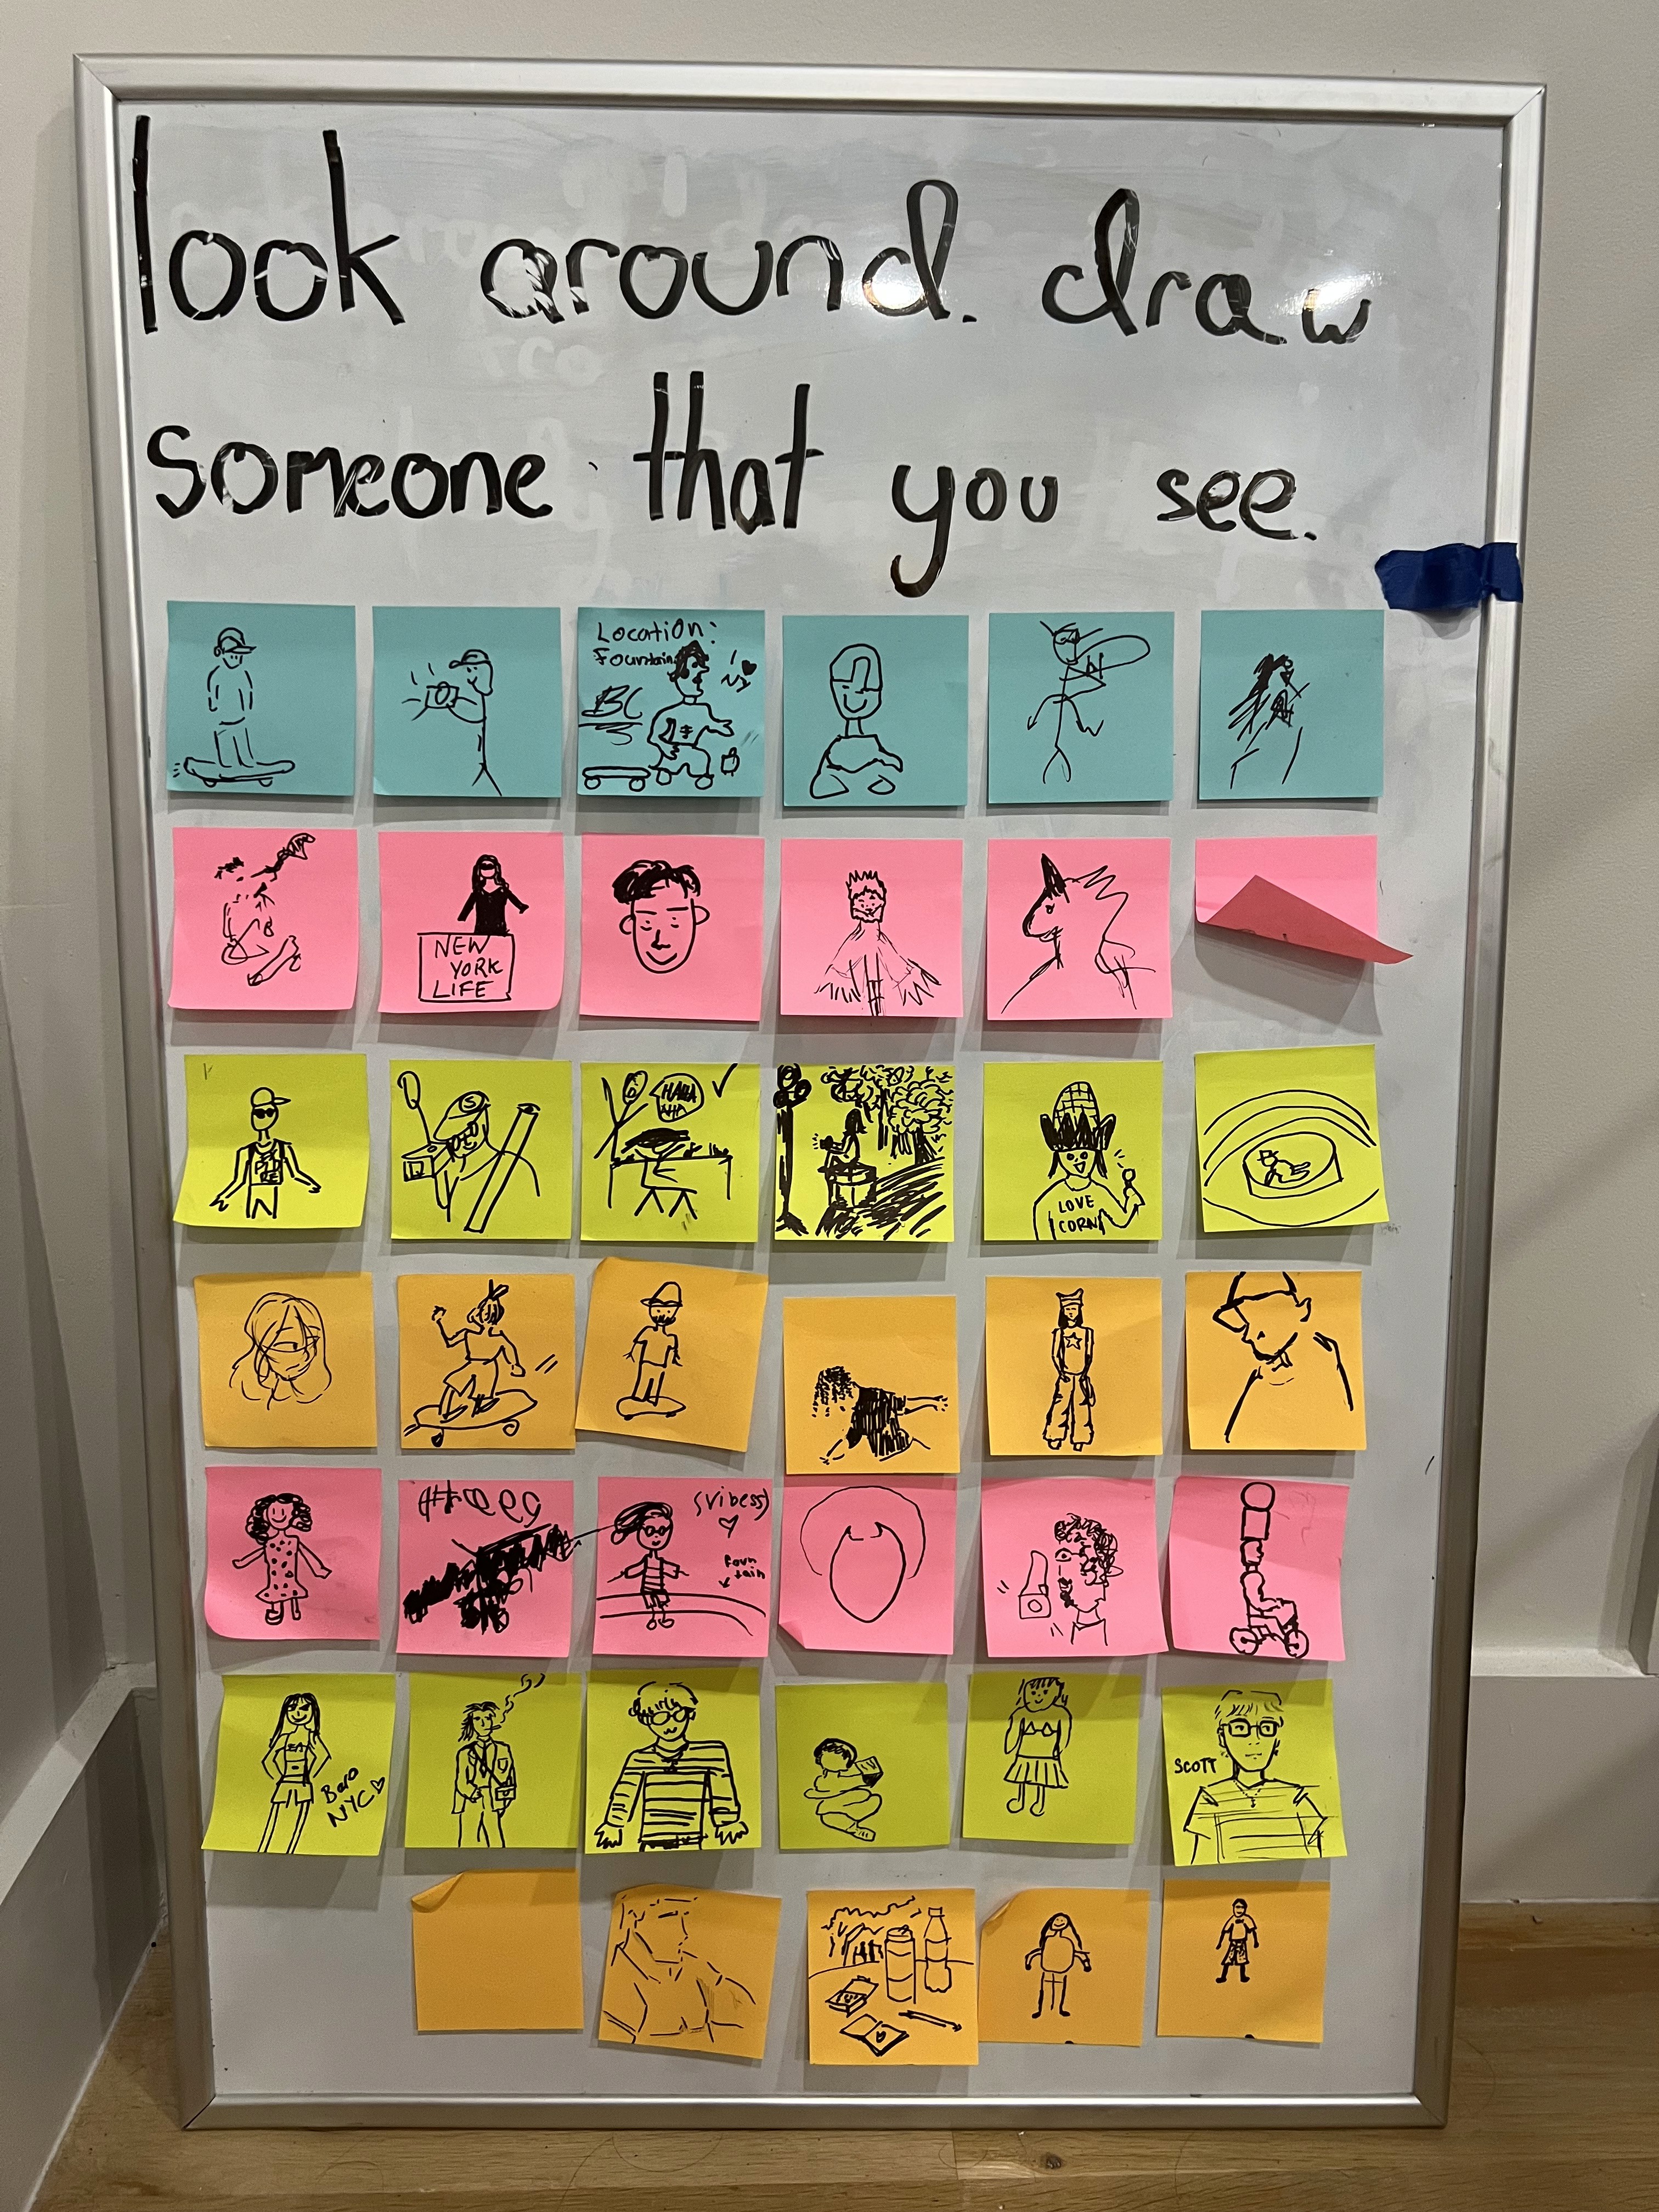 look around. draw
someone that you see.
Location:
Fountain
BC
I ♥
NY
NEW
YORK
LIFE
HAHA
HA
S
LOVE
CORN
(vibess)
foun
tain
Baro
NYC
SCOTT